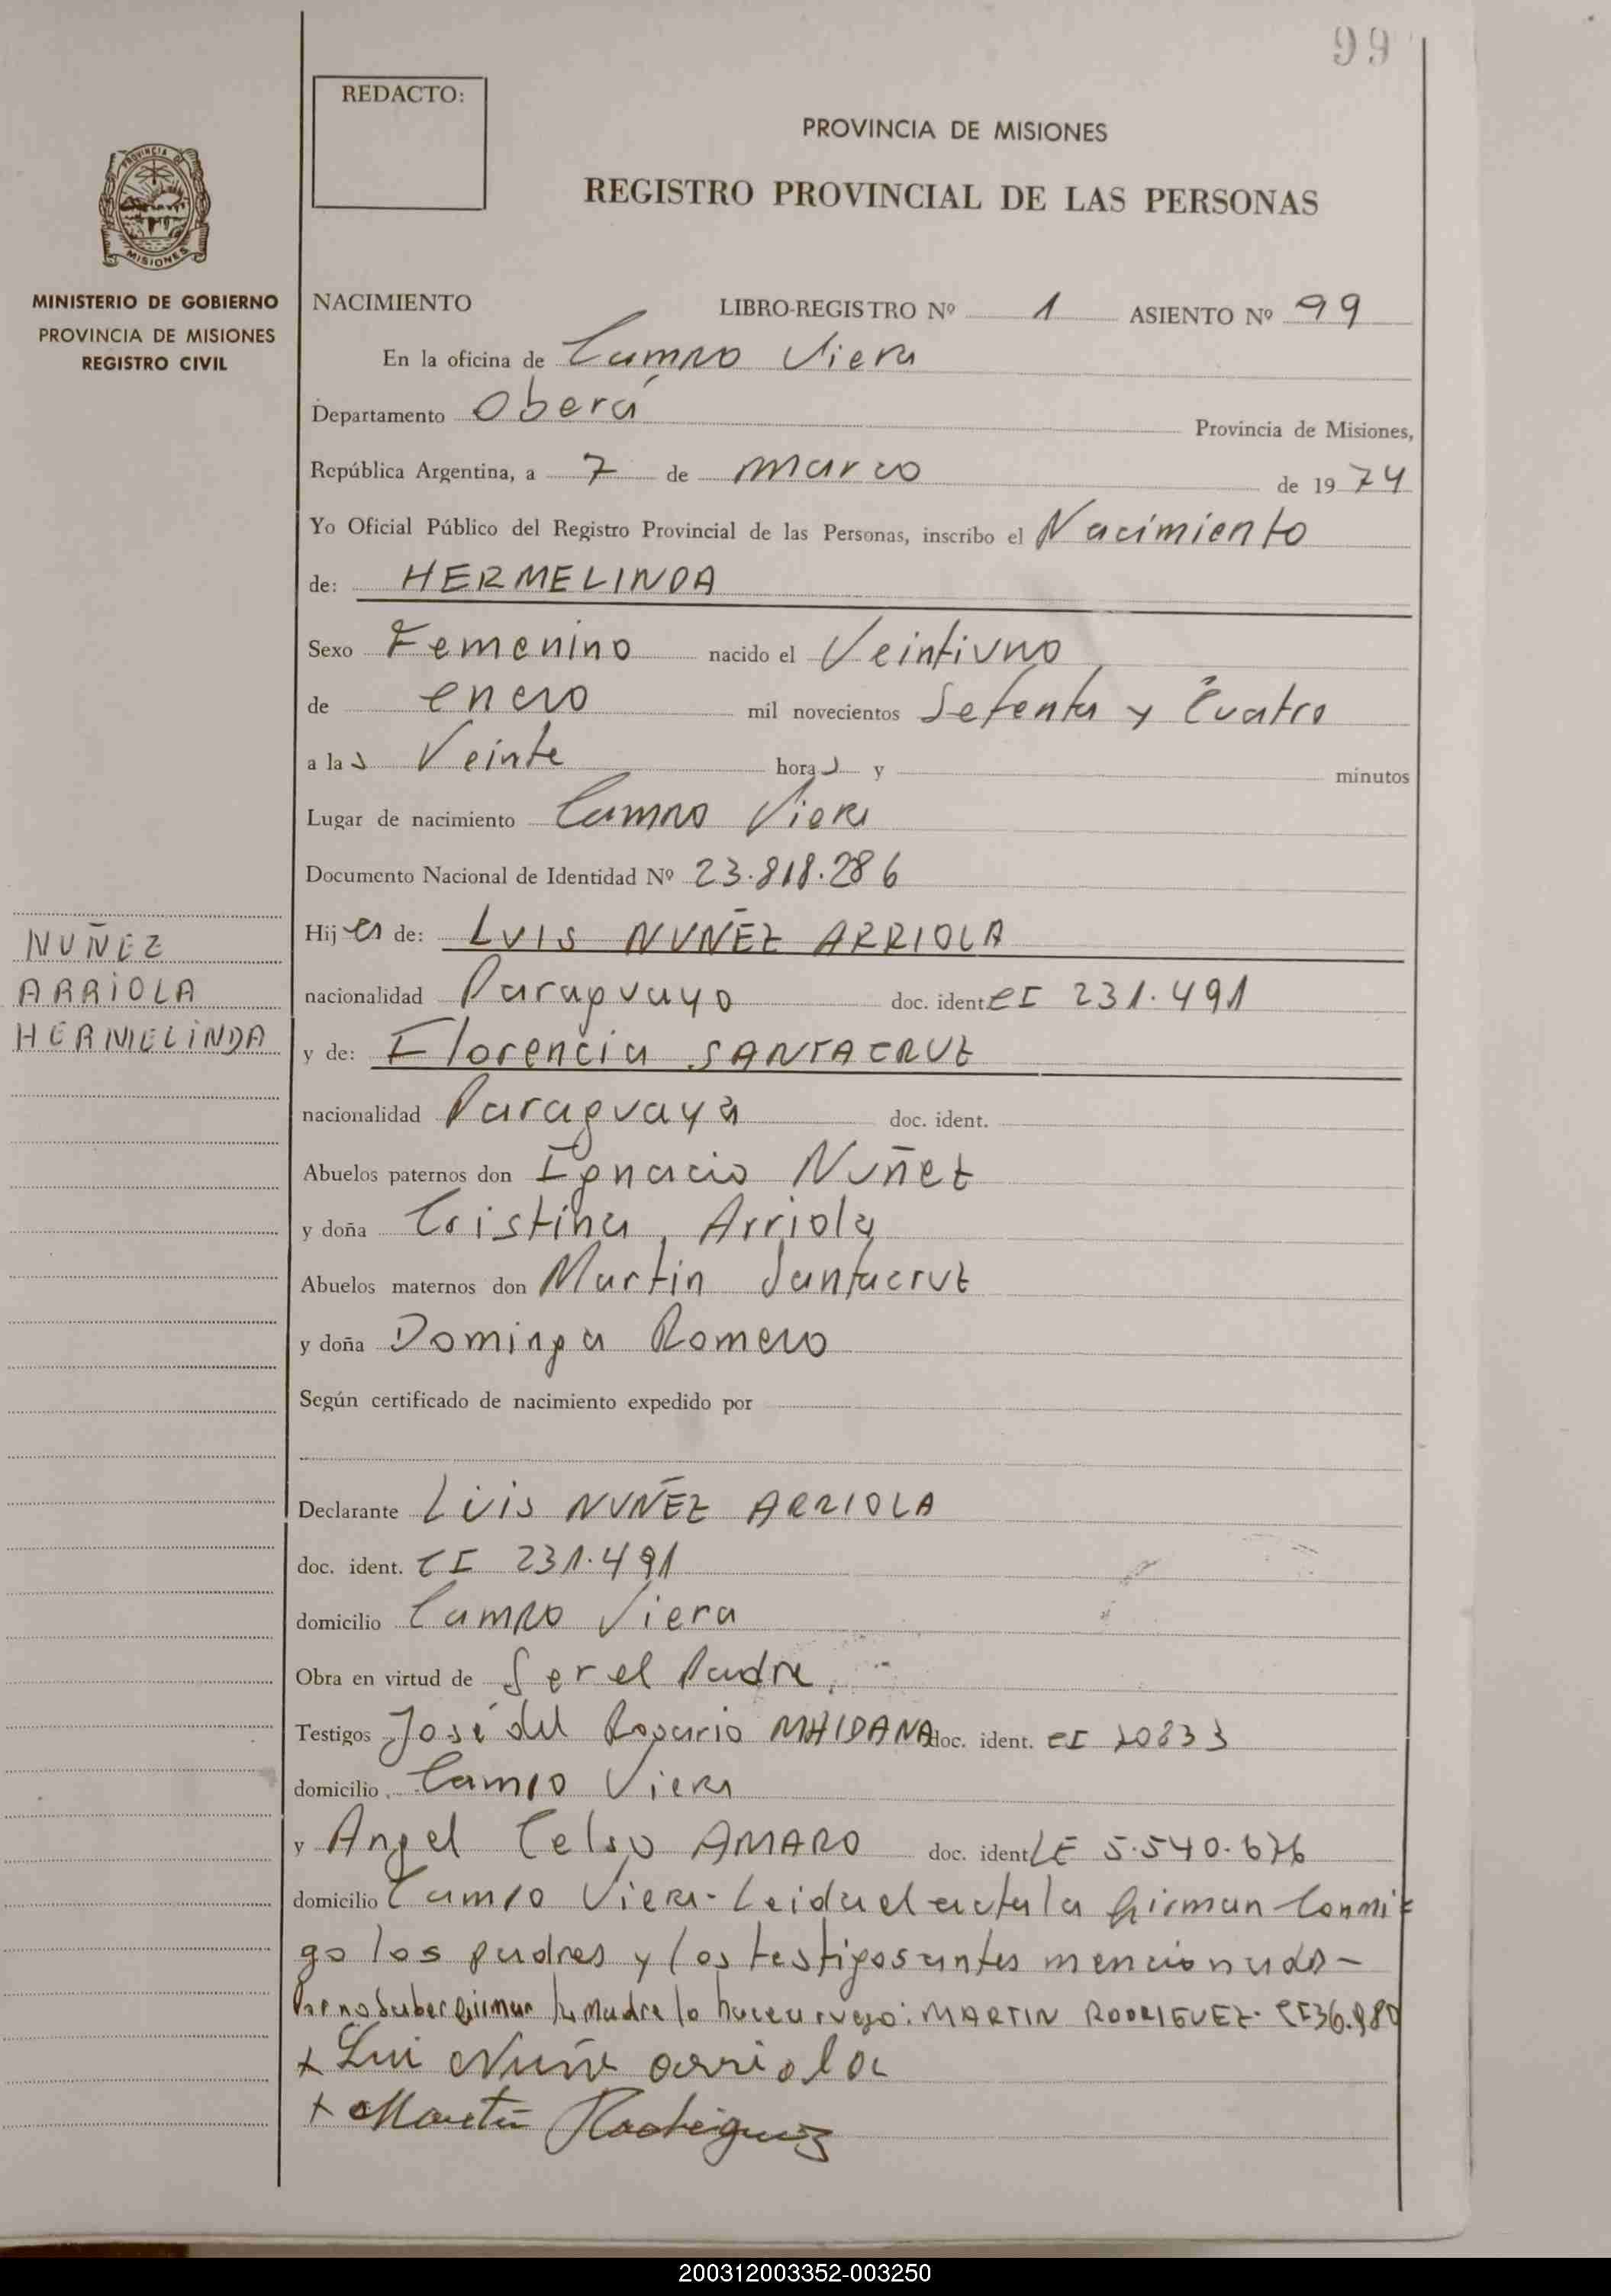 99
REDACTO:
PROVINCIA DE MISIONES
REGISTRO PROVINCIAL DE LAS PERSONAS
PROVINCIA DE
MISIONES
MINISTERIO DE GOBIERNO
PROVINCIA DE MISIONES
REGISTRO CIVIL
NACIMIENTO LIBRO-REGISTRO Nº 1 ASIENTO Nº 99
En la oficina de Campo Viera
Departamento Oberá Provincia de Misiones,
República Argentina, a 7 de marzo de 1974
Yo Oficial Público del Registro Provincial de las Personas, inscribo el Nacimiento
de: HERMELINDA
Sexo Femenino nacido el Veintiuno
de enero mil novecientos Setenta y Cuatro
a las Veinte horas y minutos
Lugar de nacimiento Campo Viera
Documento Nacional de Identidad Nº 23.818.286
NUÑEZ
ARRIOLA
HERMELINDA
Hija de: LUIS NUÑEZ ARRIOLA
nacionalidad Paraguayo doc. ident. CI 231.491
y de: Florencia SANTACRUZ
nacionalidad Paraguaya doc. ident.
Abuelos paternos don Ignacio Nuñez
y doña Cristina Arriola
Abuelos maternos don Martin Santacruz
y doña Dominga Romero
Según certificado de nacimiento expedido por
Declarante Luis NUÑEZ ARRIOLA
doc. ident. CI 231.491
domicilio Campo Viera
Obra en virtud de Ser el Padre.
Testigos José del Rosario MAIDANA doc. ident. CI
domicilio Campo Viera
y Angel Celso AMARO doc. ident. LE 5.540.676
domicilio Campo Viera- Leida el acta la firman Conmi=
go los padres y los testigos antes mencionado-
Por no saber firmar la madre lo hace a ruego: MARTIN RODRIGUEZ- CI 36.980
x Lui Nuñe arriola
x Martin Rodriguez
200312003352-003250